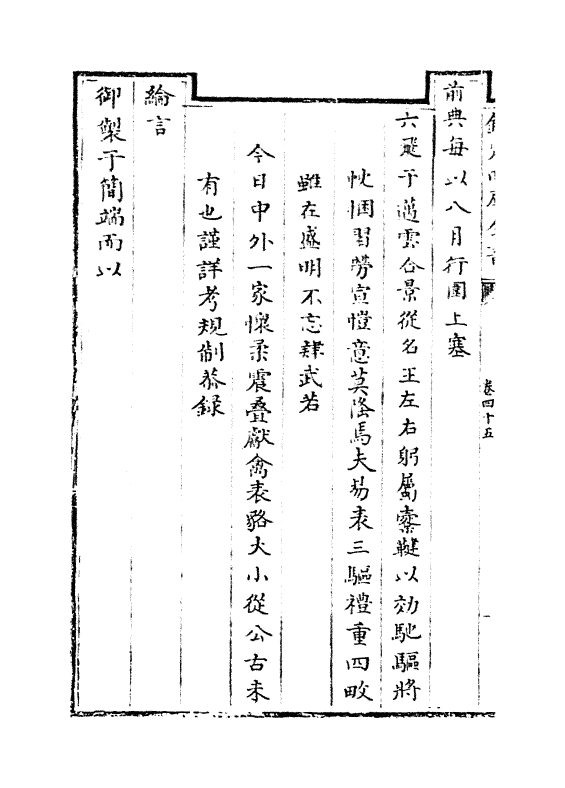 前典每以八月行圍上塞
六飛于邁雲合景從名王左右躬屬櫜鞬以効馳驅將
忱悃習勞宣愷意莫隆焉夫易表三驅禮重四畋
雖在盛明不忘肄武若
今日中外一家懷柔震疊獻禽表貉大小從公古未
有也謹詳考規制恭錄
綸言
御製于簡端而以
卷四十五